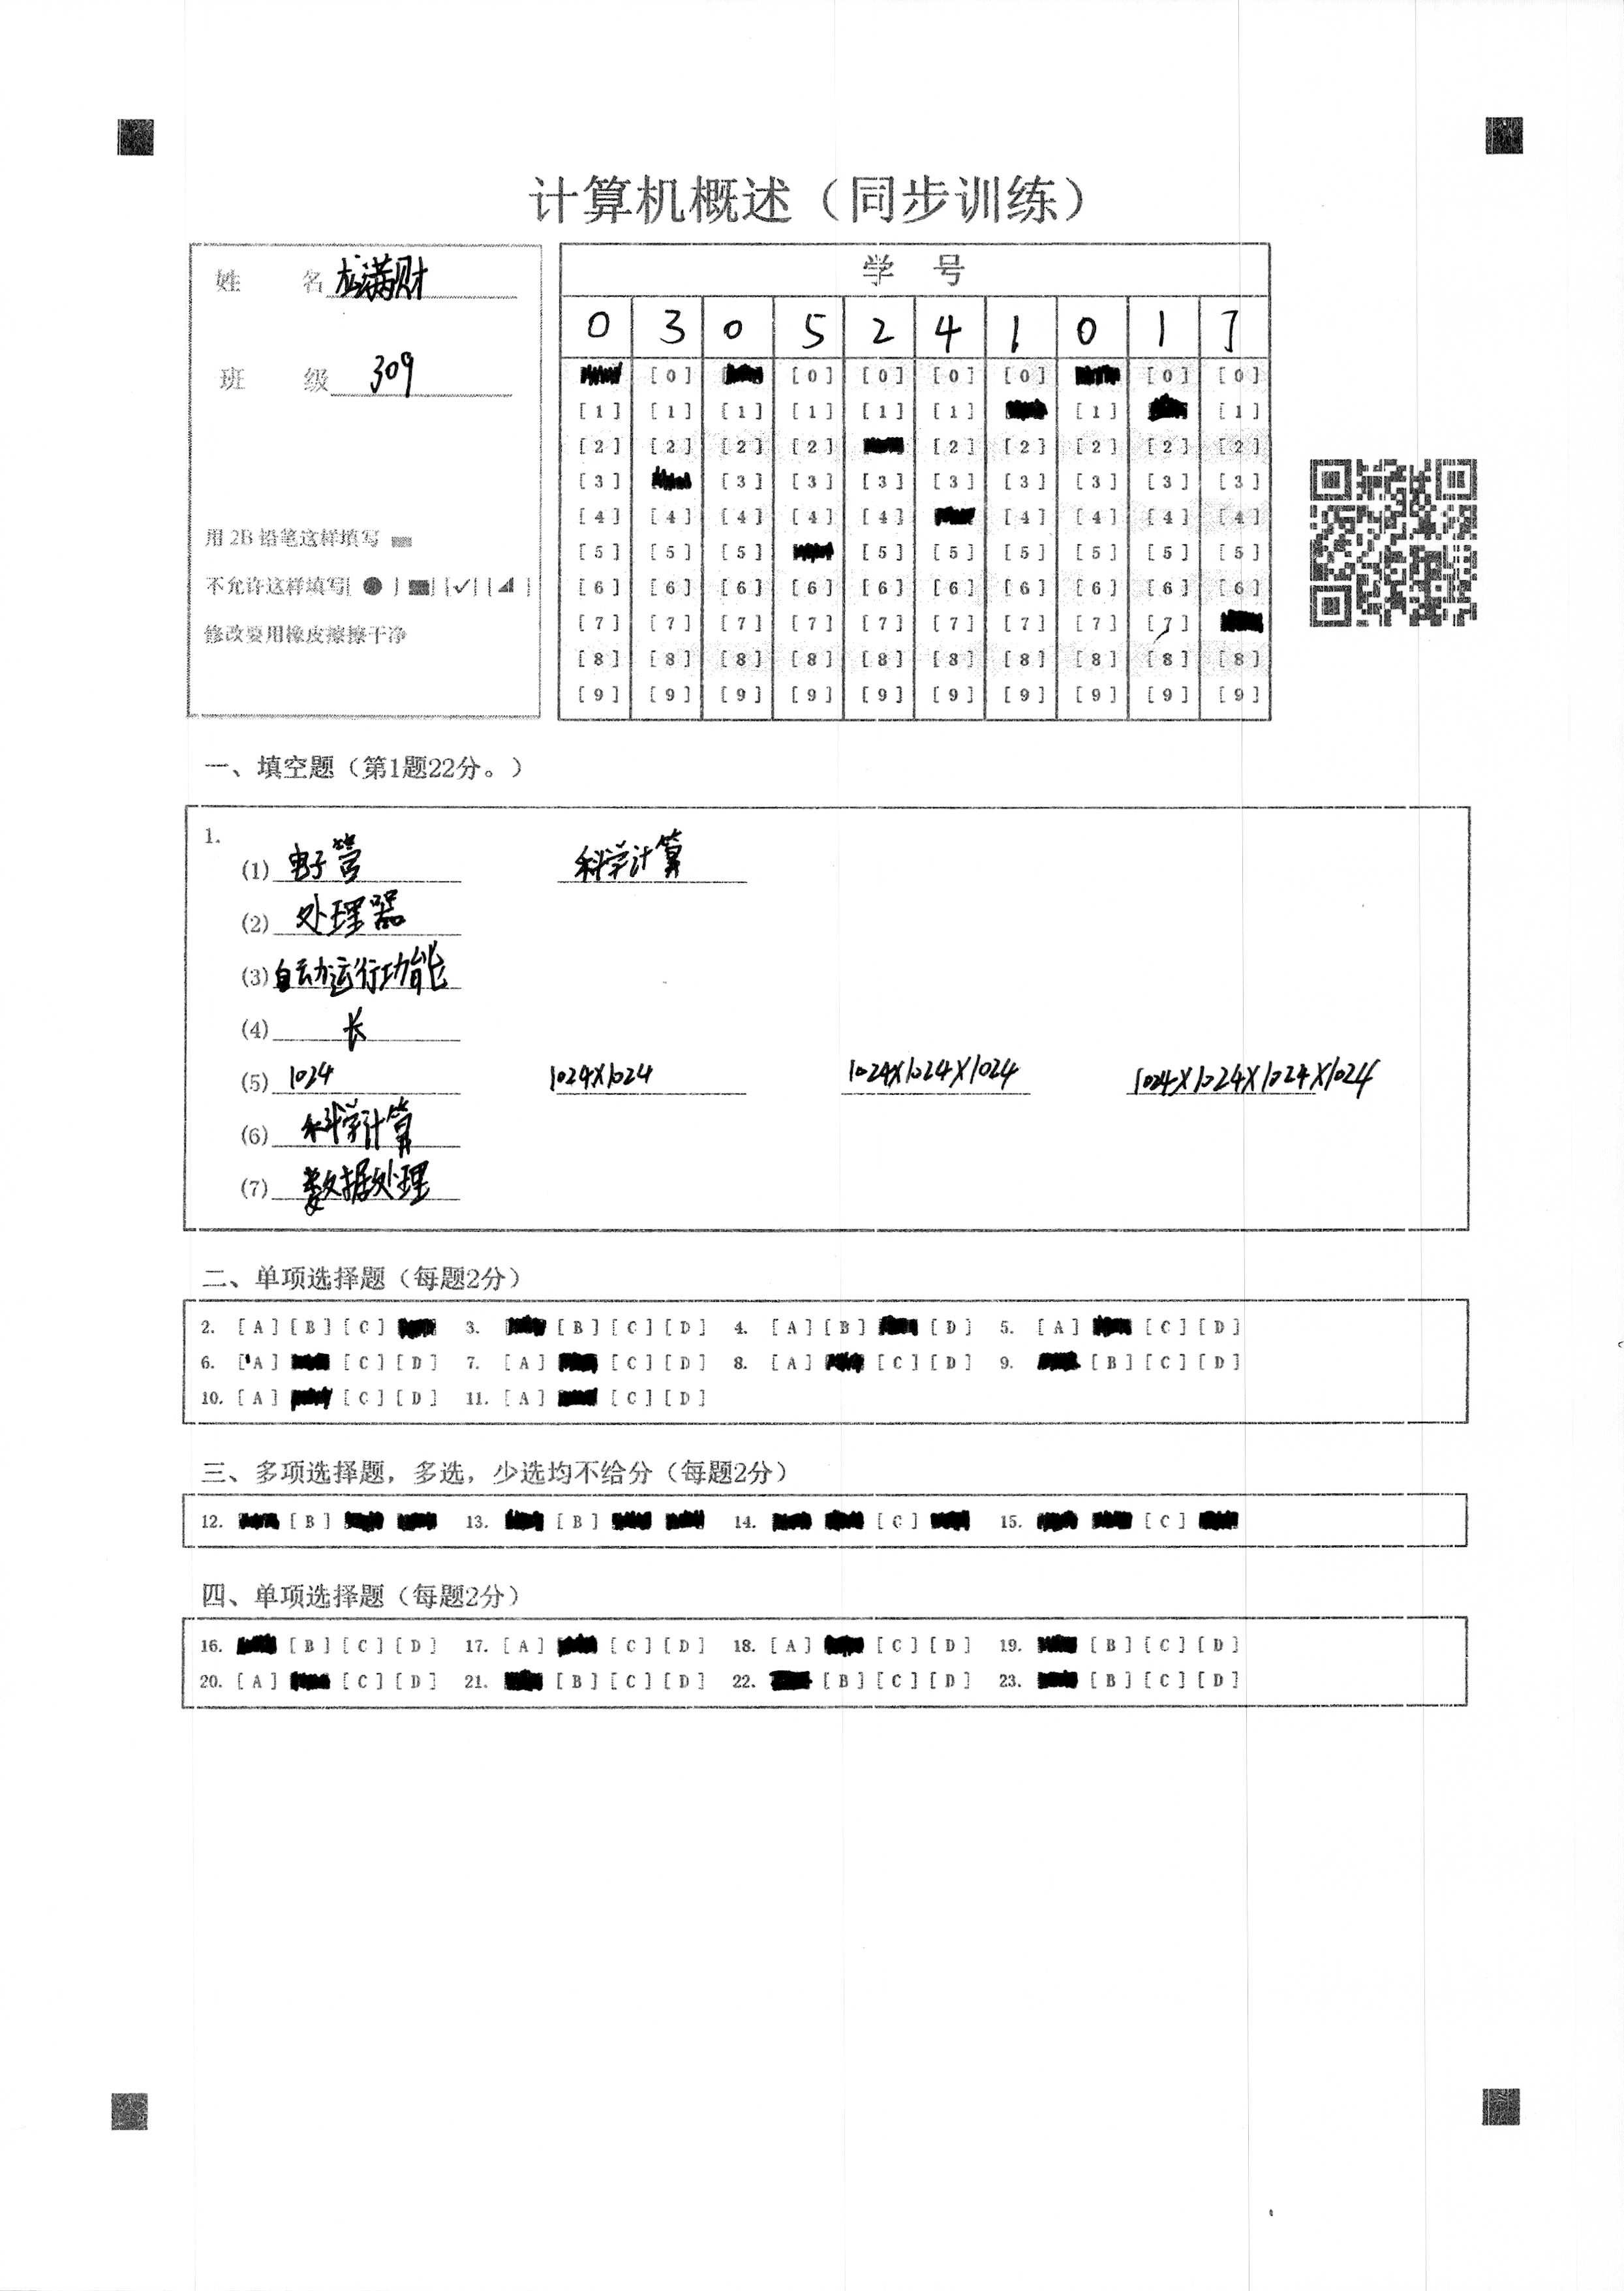 计算机概述（同步训练）
姓 名 满财
班 级 309
用 2B 铅笔这样填写
不允许这样填写[ ● ] [■] [✓] [◢ ]
修改要用橡皮擦擦干净
学 号
0 3 0 5 2 4 1 0 1 7
[0] [0] [0] [0] [0] [0] [0]
[1] [1] [1] [1] [1] [1] [1] [1]
[2] [2] [2] [2] [2] [2] [2] [2] [2]
[3] [3] [3] [3] [3] [3] [3] [3] [3]
[4] [4] [4] [4] [4] [4] [4] [4] [4]
[5] [5] [5] [5] [5] [5] [5] [5] [5]
[6] [6] [6] [6] [6] [6] [6] [6] [6] [6]
[7] [7] [7] [7] [7] [7] [7] [7] [7]
[8] [8] [8] [8] [8] [8] [8] [8] [8] [8]
[9] [9] [9] [9] [9] [9] [9] [9] [9] [9]
一、填空题（第1题22分。）
1.
(1) 电子管 科学计算
(2) 处理器
(3) 自动运行功能
(4) 长
(5) 1024 1024×1024 1024×1024×1024 1024×1024×1024×1024
(6) 科学计算
(7) 数据处理
二、单项选择题（每题2分）
2. [A] [B] [C] 3. [B] [C] [D] 4. [A] [B] [D] 5. [A] [C] [D]
6. [A] [C] [D] 7. [A] [C] [D] 8. [A] [C] [D] 9. [B] [C] [D]
10. [A] [C] [D] 11. [A] [C] [D]
三、多项选择题，多选，少选均不给分（每题2分）
12. [B] 13. [B] 14. [C] 15. [C]
四、单项选择题（每题2分）
16. [B] [C] [D] 17. [A] [C] [D] 18. [A] [C] [D] 19. [B] [C] [D]
20. [A] [C] [D] 21. [B] [C] [D] 22. [B] [C] [D] 23. [B] [C] [D]